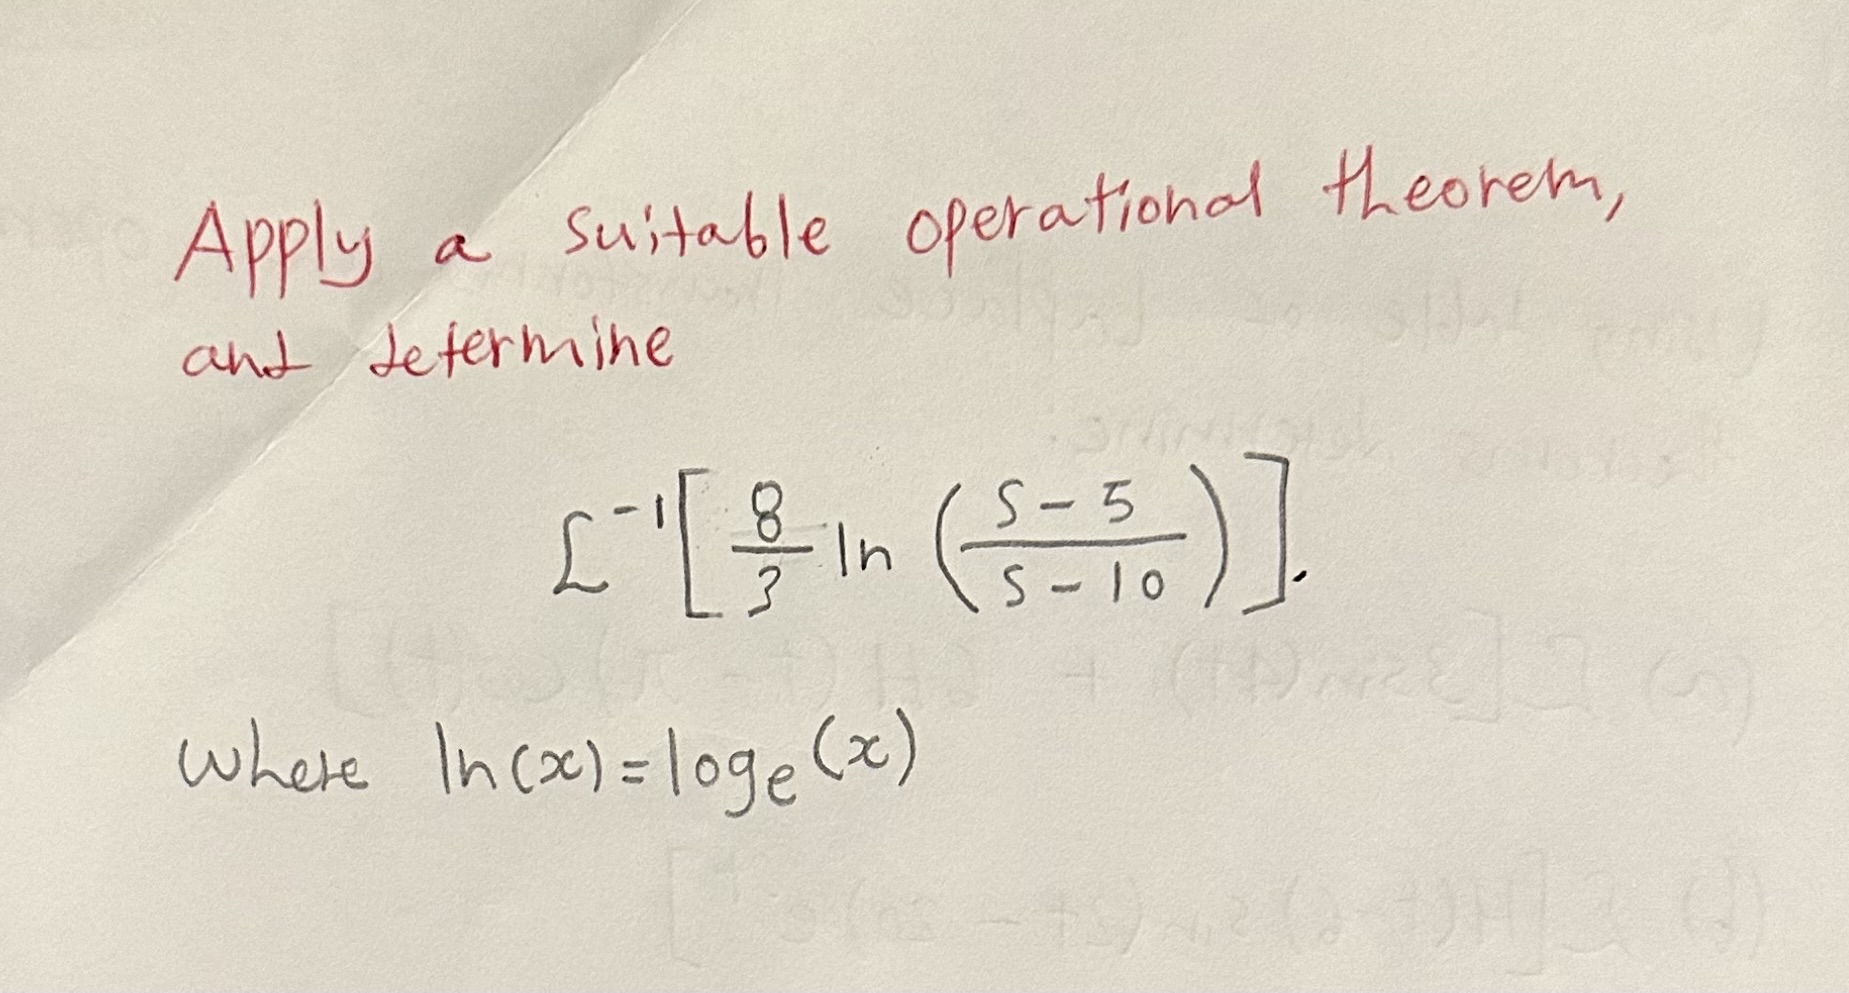 Apply a suitable operational theorem,
and determine
£⁻¹[8/3 ln((s-5)/(s-10))].
where ln(x)=logₑ(x)